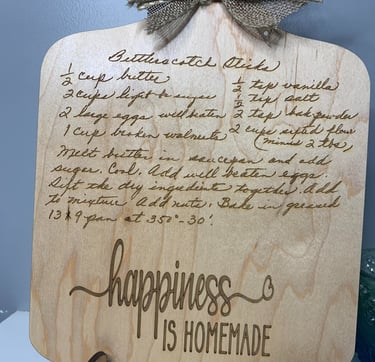 Butterscotch Sticks
½ cup butter
½ tsp vanilla
2 cups light br sugar
½ tsp salt
2 large eggs well beaten
2 tsp bak powder
1 cup broken walnuts
2 cups sifted flour
(minus 2 tbs)
Melt butter in saucepan and add
sugar. Cool, Add well beaten eggs.
Sift the dry ingredients together. Add
to mixture. Add nuts. Bake in greased
13x9 pan at 350°-30'.
happiness
IS HOMEMADE